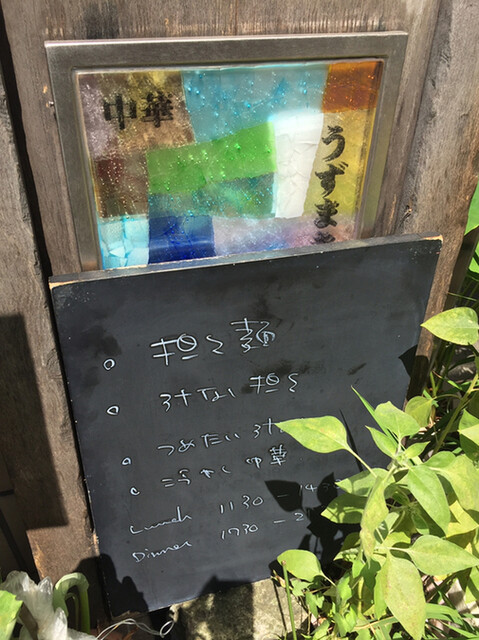 中華
うずま
担々麺
汁なし担々
つめたい汁
冷やし中華
Lunch 1130 - 14
Dinner 1730 - 2